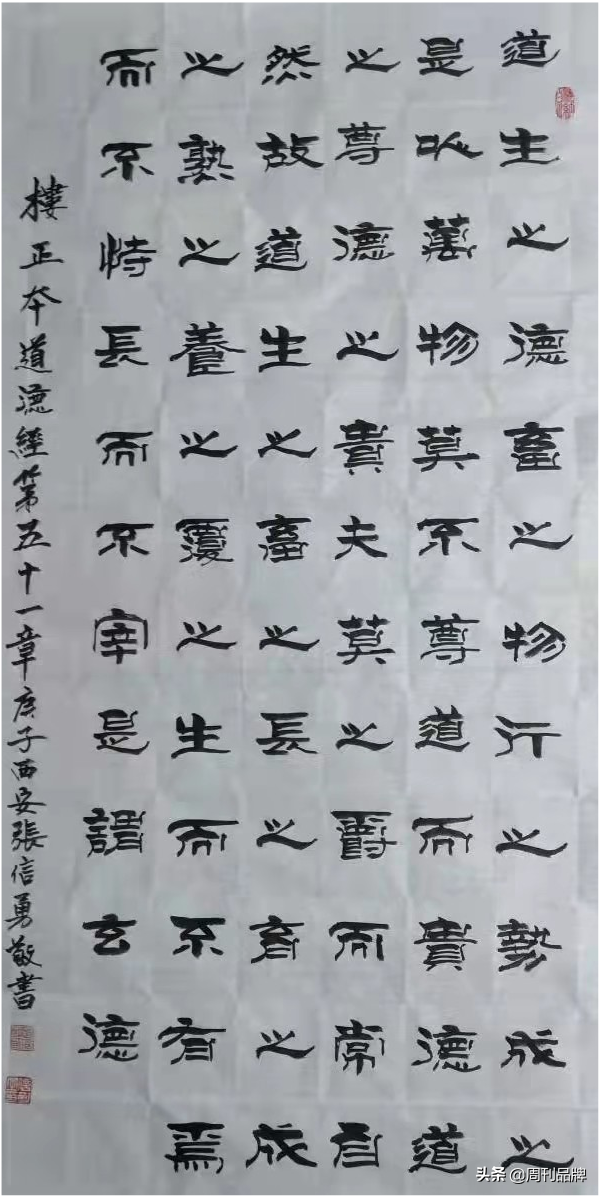 道生之德畜之物行之勢成之
是以萬物莫不尊道而貴德道
之尊德之貴夫莫之爵而常自
然故道生之畜之長之育之成
之熟之養之覆之生而不有焉
而不恃長而不宰是謂玄德
樓正本道德經第五十一章庚子西安張信勇敬書
头条 @周刊品牌